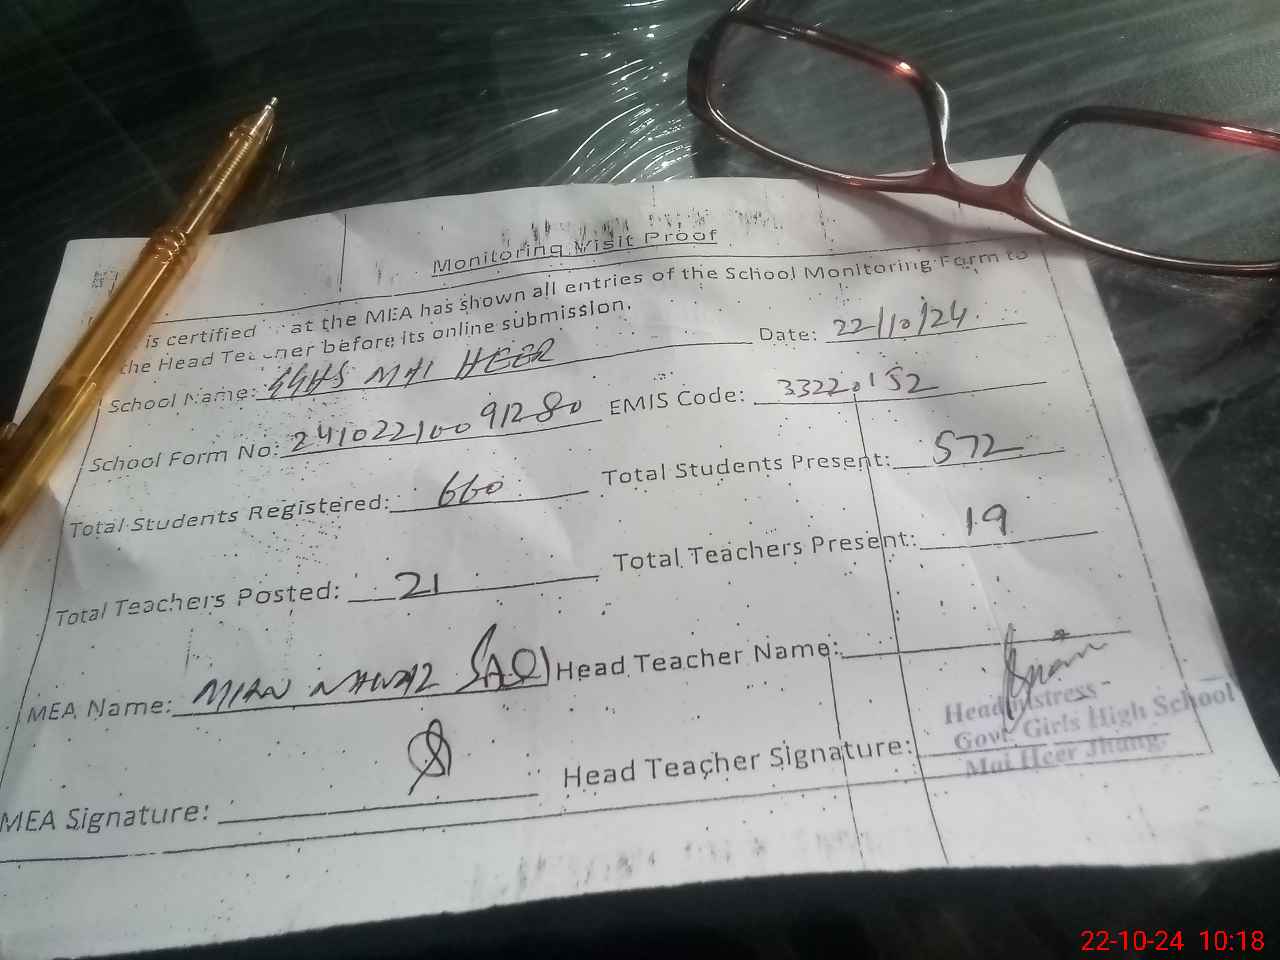 Monitoring Visit Proof
is certified at the MEA has shown all entries of the School Monitoring Form to
the Head Teacher before its online submission.
School Name: GGHS MAI HEER Date: 22/10/24
School Form No: 24102210091280 EMIS Code: 33220152
Total Students Registered: 660 Total Students Present: 572
Total Teachers Posted: 21 Total Teachers Present: 19
MEA Name: MIAN NAWAZ Head Teacher Name:
MEA Signature: Head Teacher Signature:
Headmistress
Govt Girls High School
Mai Heer Jhang.
22-10-24 10:18